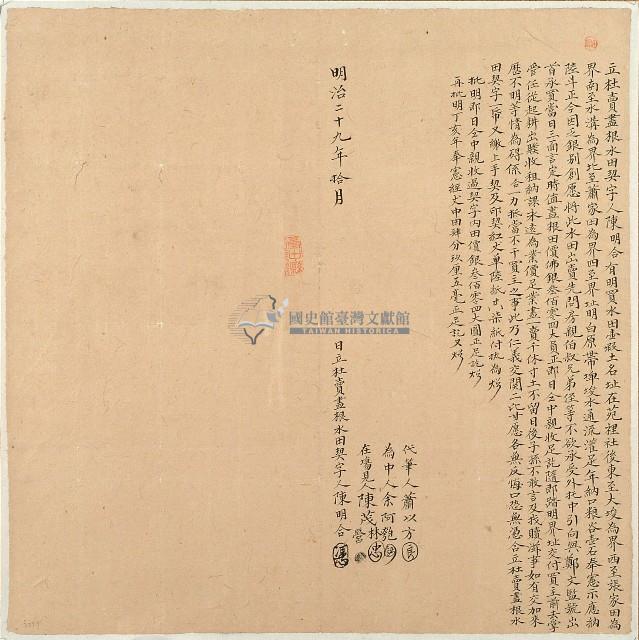 立杜賣盡根水田契字人陳明合有明買水田壹段土名址在苑裡社後東至大埈為界西至張家田為
界南至水溝為界北至蕭家田為界四至界址明白原帶埤埈水通流灌足年納口粮谷壹石奉憲示應納
陸斗正今因乏銀別創愿將此水田出賣先問房親伯叔兄弟侄等不欲承受外托中引向與鄭文監號出
首承買當日三面言定時值盡根田價佛銀叁佰零四大員正即日仝中親收足訖隨即踏明界址交付買主前去掌
管任從起耕出贌收租納課永遠為業價足業盡一賣千休寸土不留日後子孫不敢言及找贖滋事如有交加來
歷不明等情為碍係合一力抵當不干買主之事此乃仁義交関二比甘愿各無反悔口恐無憑合立杜賣盡根水
田契字一帋又繳上手契及印契紅火單陸紙共柒紙付執為炤
批明即日仝中親收過契字內田價銀叁佰零四大圓正足訖炤
再批明丁亥年奉憲經丈中田肆分玖厘五毫正足訖又炤
代筆人蕭以方
為中人余阿
在塲見人陳茂林
營
明治二十九年拾月 日立杜賣盡根水田契字人陳明合
國史館臺灣文獻館
TAIWAN HISTORICA